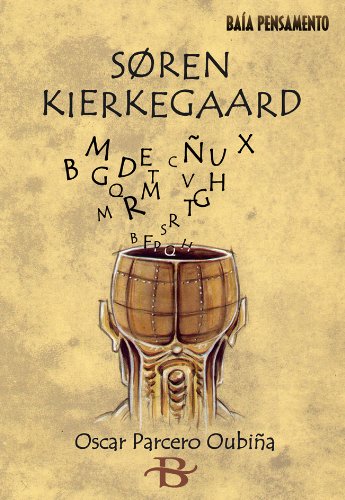 BAÍA PENSAMENTO
SØREN
KIERKEGAARD
B M G D E T C Ñ U X
M Q R M V T G H
S R
B F P Q H
Oscar Parcero Oubiña
B